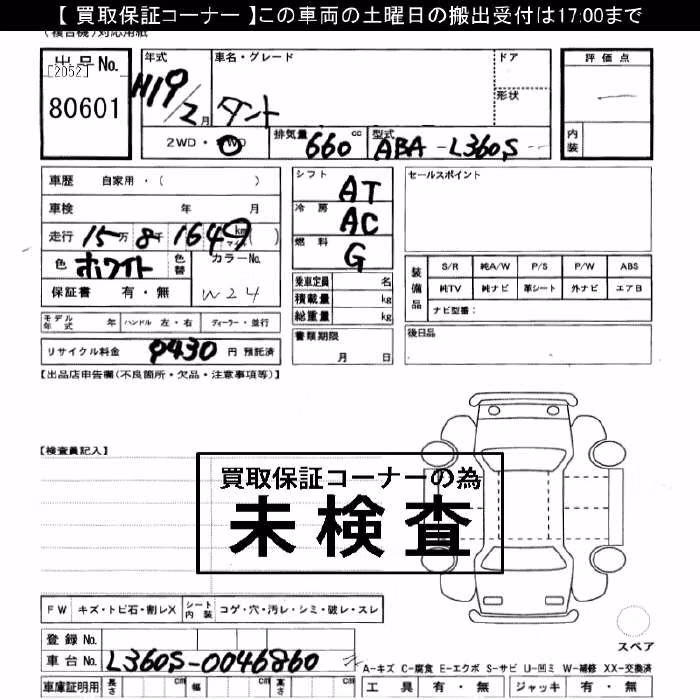 【 買取保証コーナー 】この車両の土曜日の搬出受付は17:00まで
(複合機)対応用紙
出品No. [2052] 80601
年式 H19/2月
車名・グレード タント
ドア
形状
評価点
内装
2WD・4WD
排気量 660 cc
型式 ABA-L360S
車歴 自家用・( )
車検 年 月
走行 15万 8千 1649 km マイル ( )
色 ホワイト 色替 カラーNo. W24
保証書 有・無
シフト AT
冷房 AC
燃料 G
乗車定員 名
積載量 kg
総重量 kg
セールスポイント
装備品 S/R 純A/W P/S P/W ABS
純TV 純ナビ 革シート 外ナビ エアB
ナビ型番:
モデル年式 年 ハンドル 左・右 ディーラー・並行
リサイクル料金 9430 円 預託済
書類期限 月 日
後日品
【出品店申告欄(不良箇所・欠品・注意事項等)】
【検査員記入】
買取保証コーナーの為
未検査
FW キズ・トビ石・割レX シート内装 コゲ・穴・汚レ・シミ・破レ・スレ
登録No.
車台No. L360S-0046860
スペア
A-キズ C-腐食 E-エクボ S-サビ U-凹ミ W-補修 XX-交換済
車庫証明用 長さ cm 幅 cm 高さ cm
工具 有・無 ジャッキ 有・無